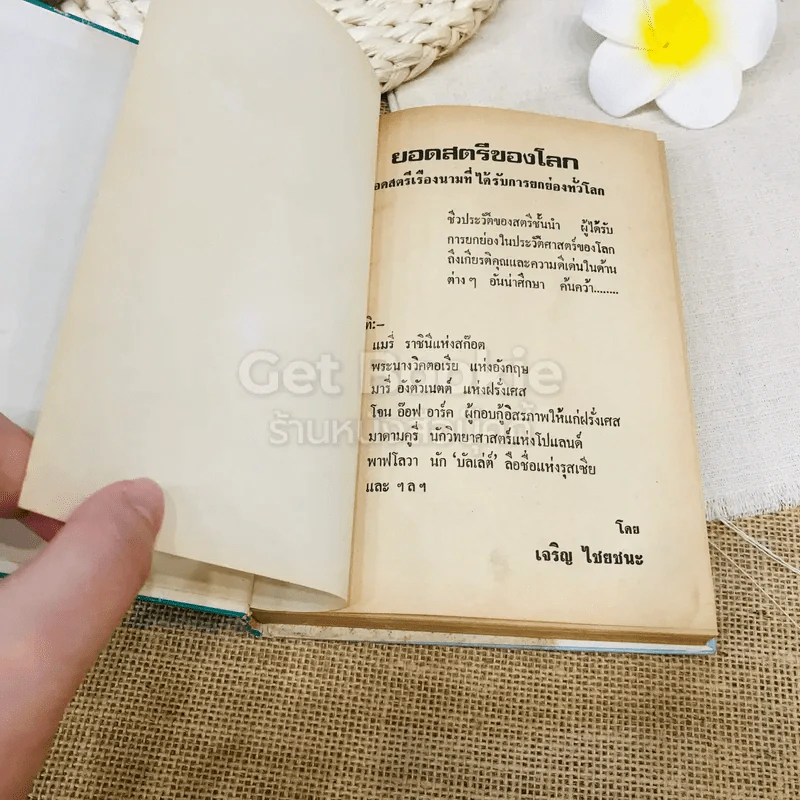 ยอดสตรีของโลก
อดสตรีเรืองนามที่ได้รับการยกย่องทั่วโลก
ชีวประวัติของสตรีชั้นนำ ผู้ได้รับ
การยกย่องในประวัติศาสตร์ของโลก
ถึงเกียรติคุณและความดีเด่นในด้าน
ต่างๆ อันน่าศึกษา ค้นคว้า........
ติ:–
แมรี่ ราชินีแห่งสก๊อต
พระนางวิคตอเรีย แห่งอังกฤษ
มารี อังตัวเนตต์ แห่งฝรั่งเศส
โจน อ๊อฟ อาร์ค ผู้กอบกู้อิสรภาพให้แก่ฝรั่งเศส
มาดามคูรี่ นักวิทยาศาสตร์แห่งโปแลนด์
พาฟโลวา นัก 'บัลเล่ต์' ลือชื่อแห่งรุสเซีย
และ ฯลฯ
โดย
เจริญ ไชยชนะ
Get Bookie